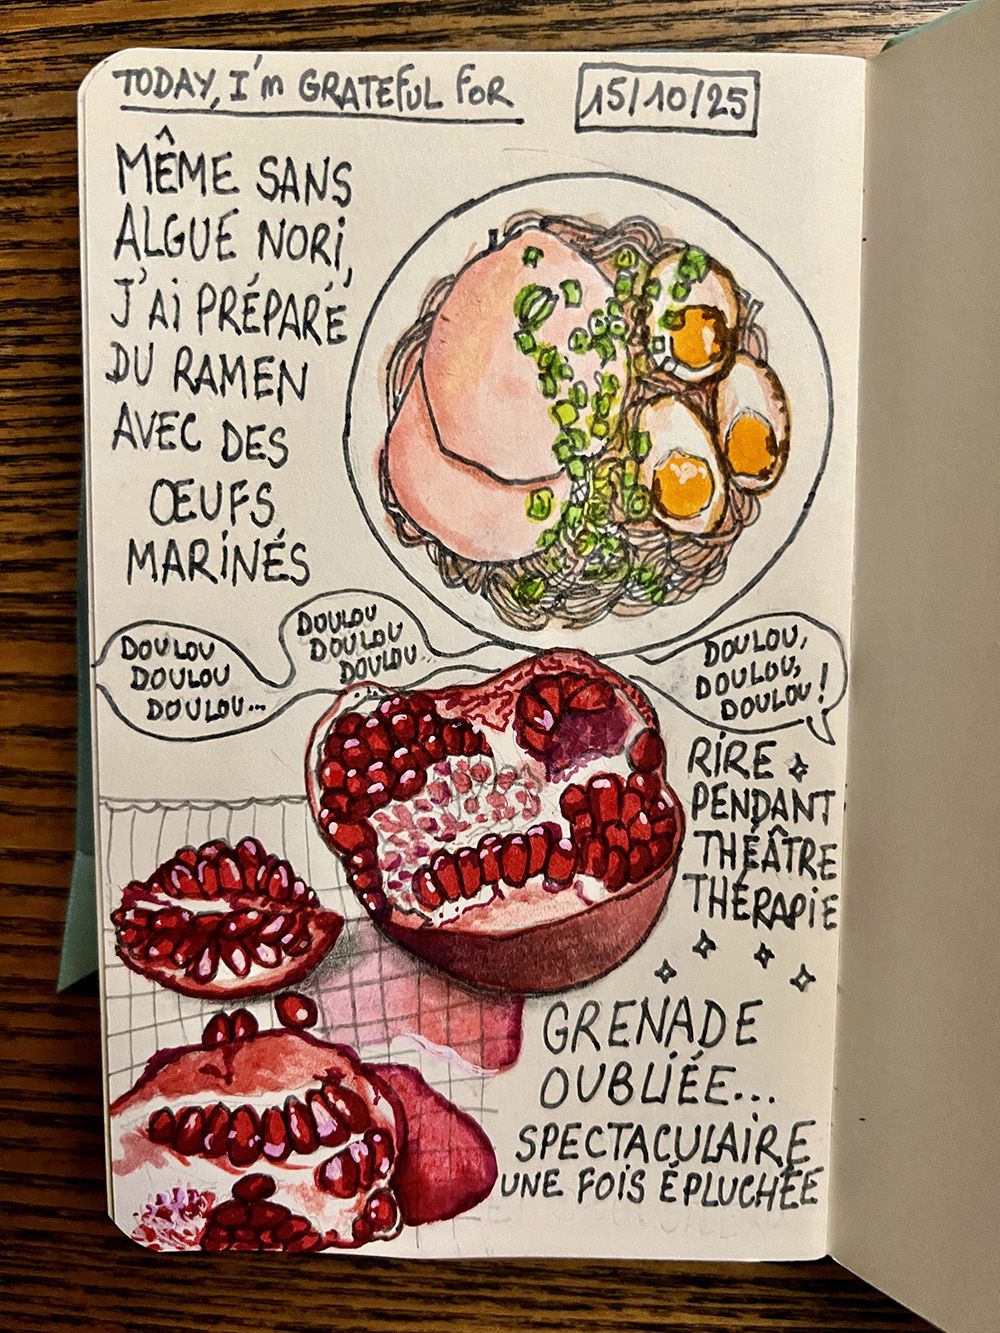 TODAY, I'm GRATEFUL FOR
15/10/25
MÊME SANS
ALGUE NORI,
J'AI PRÉPARÉ
DU RAMEN
AVEC DES
ŒUFS
MARINÉS
DOULOU
DOULOU
DOULOU...
DOULOU
DOULOU
DOULOU...
DOULOU,
DOULOU,
DOULOU!
RIRE
PENDANT
THÉÂTRE
THÉRAPIE
GRENADE
OUBLIÉE...
SPECTACULAIRE
UNE FOIS ÉPLUCHÉE